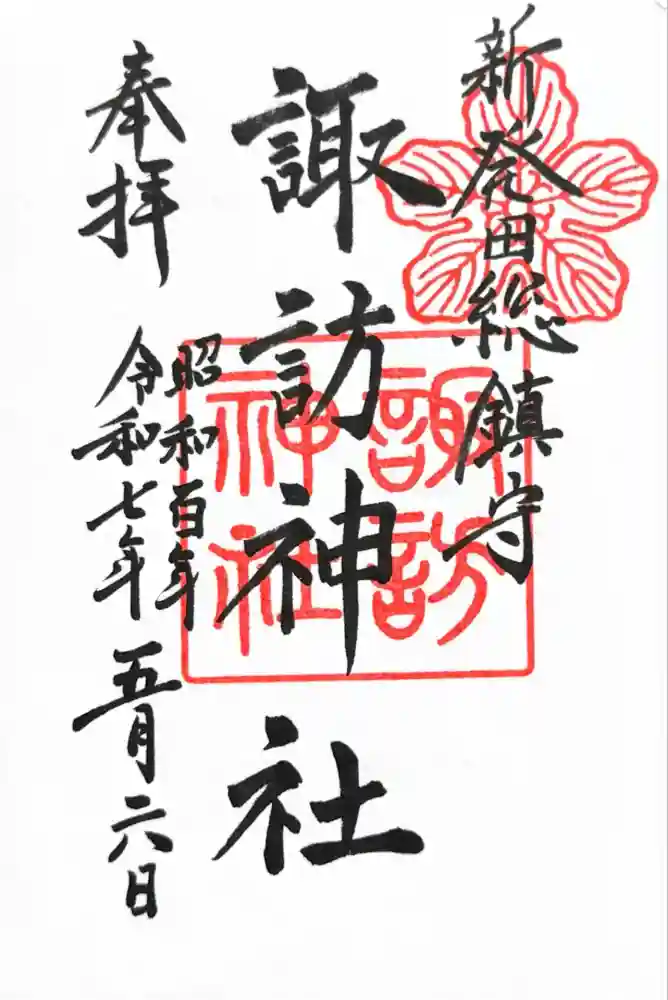 新発田総鎮守
諏訪神社
諏訪
神社
奉拝
昭和百年
令和七年五月六日